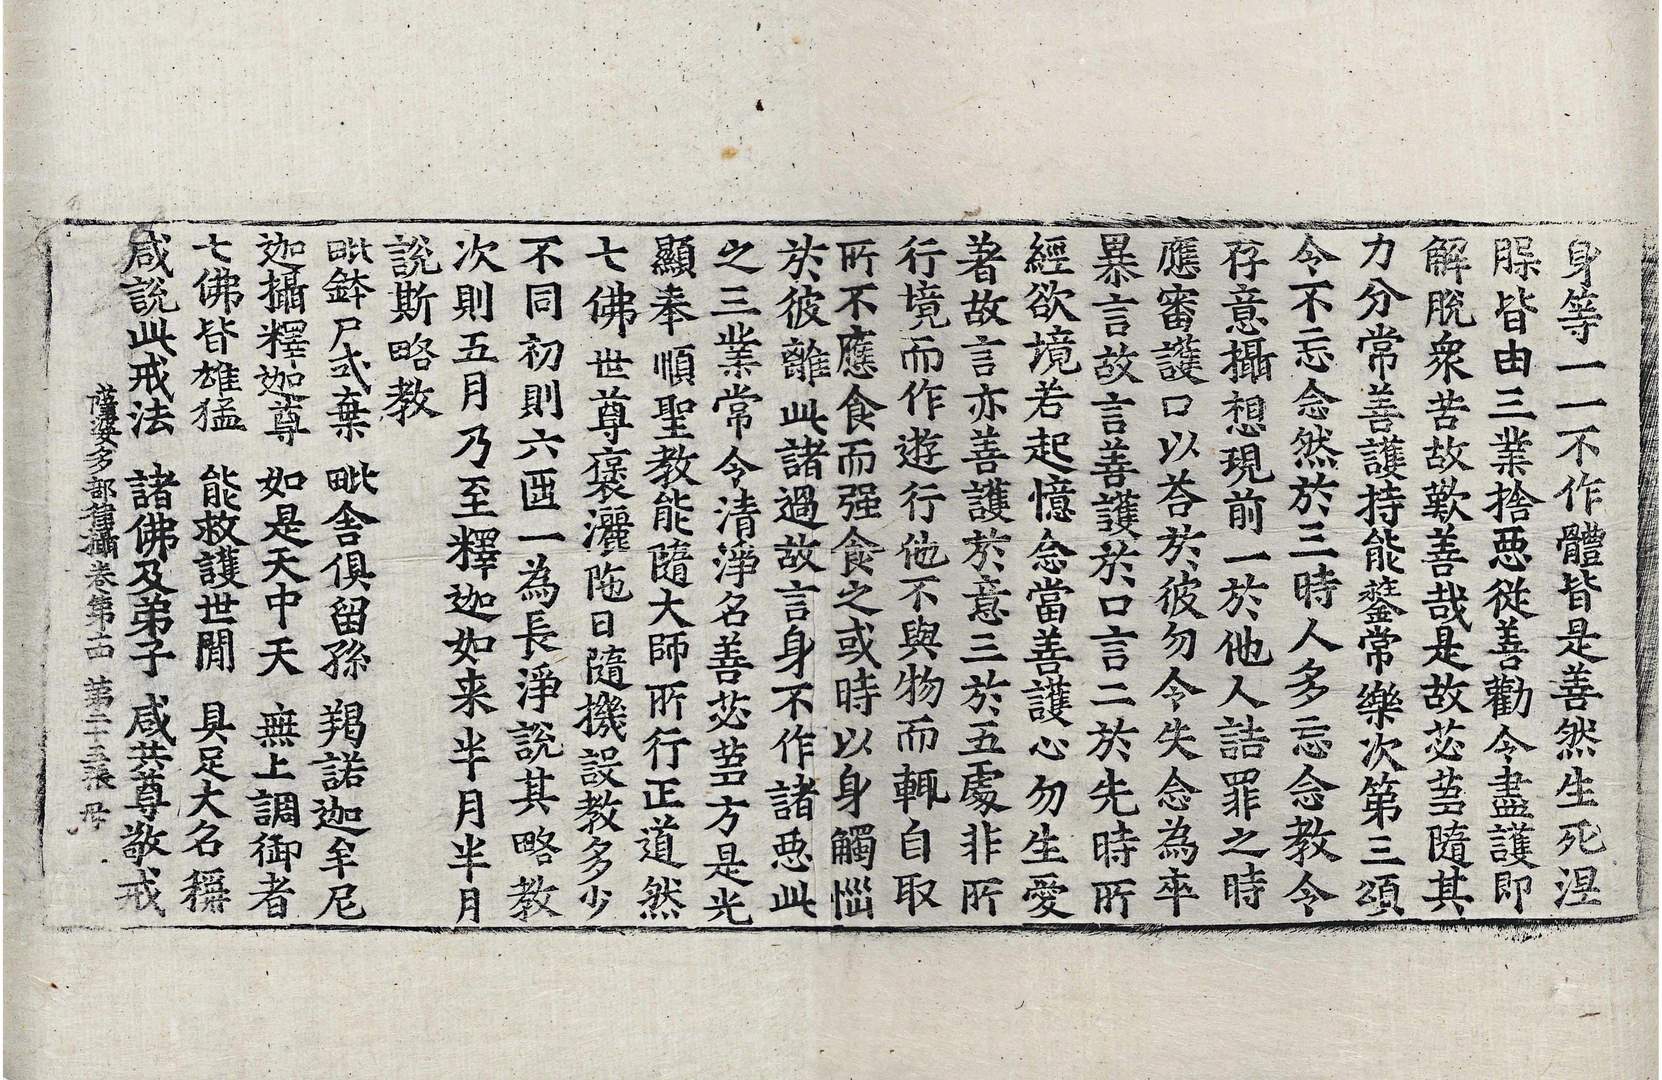 身等一一不作體皆是善然生死涅
脲皆由三業捨惡從善勸令盡護即
解脫衆苦故歎善哉是故苾蒭隨其
力分常善護持能䥫常樂次第三頌
令不忘念然於三時人多忘念教令
存意攝想現前一於他人詰罪之時
應審護口以荅於彼勿令失念為卒
暴言故言善護於口言二於先時所
經欲境若起憶念當善護心勿生愛
著故言亦善護於意三於五處非所
行境而作遊行他不與物而輒自取
所不應食而强食之或時以身觸惱
於彼離此諸過故言身不作諸惡此
之三業常令清淨名善苾蒭方是光
顯奉順聖教能隨大師所行正道然
七佛世尊褒灑陁日隨機設教多少
不同初則六函一為長淨說其略教
次則五月乃至釋迦如来半月半月
說斯略教
毗鉢尸式棄 毗舍俱留孫 羯諾迦牟尼
迦攝釋迦尊 如是天中天 無上調御者
七佛皆雄猛 能救護世閒 具足大名稱
咸說此戒法 諸佛及弟子 咸共尊敬戒
薩婆多部律攝卷第十四 第二十五張 母